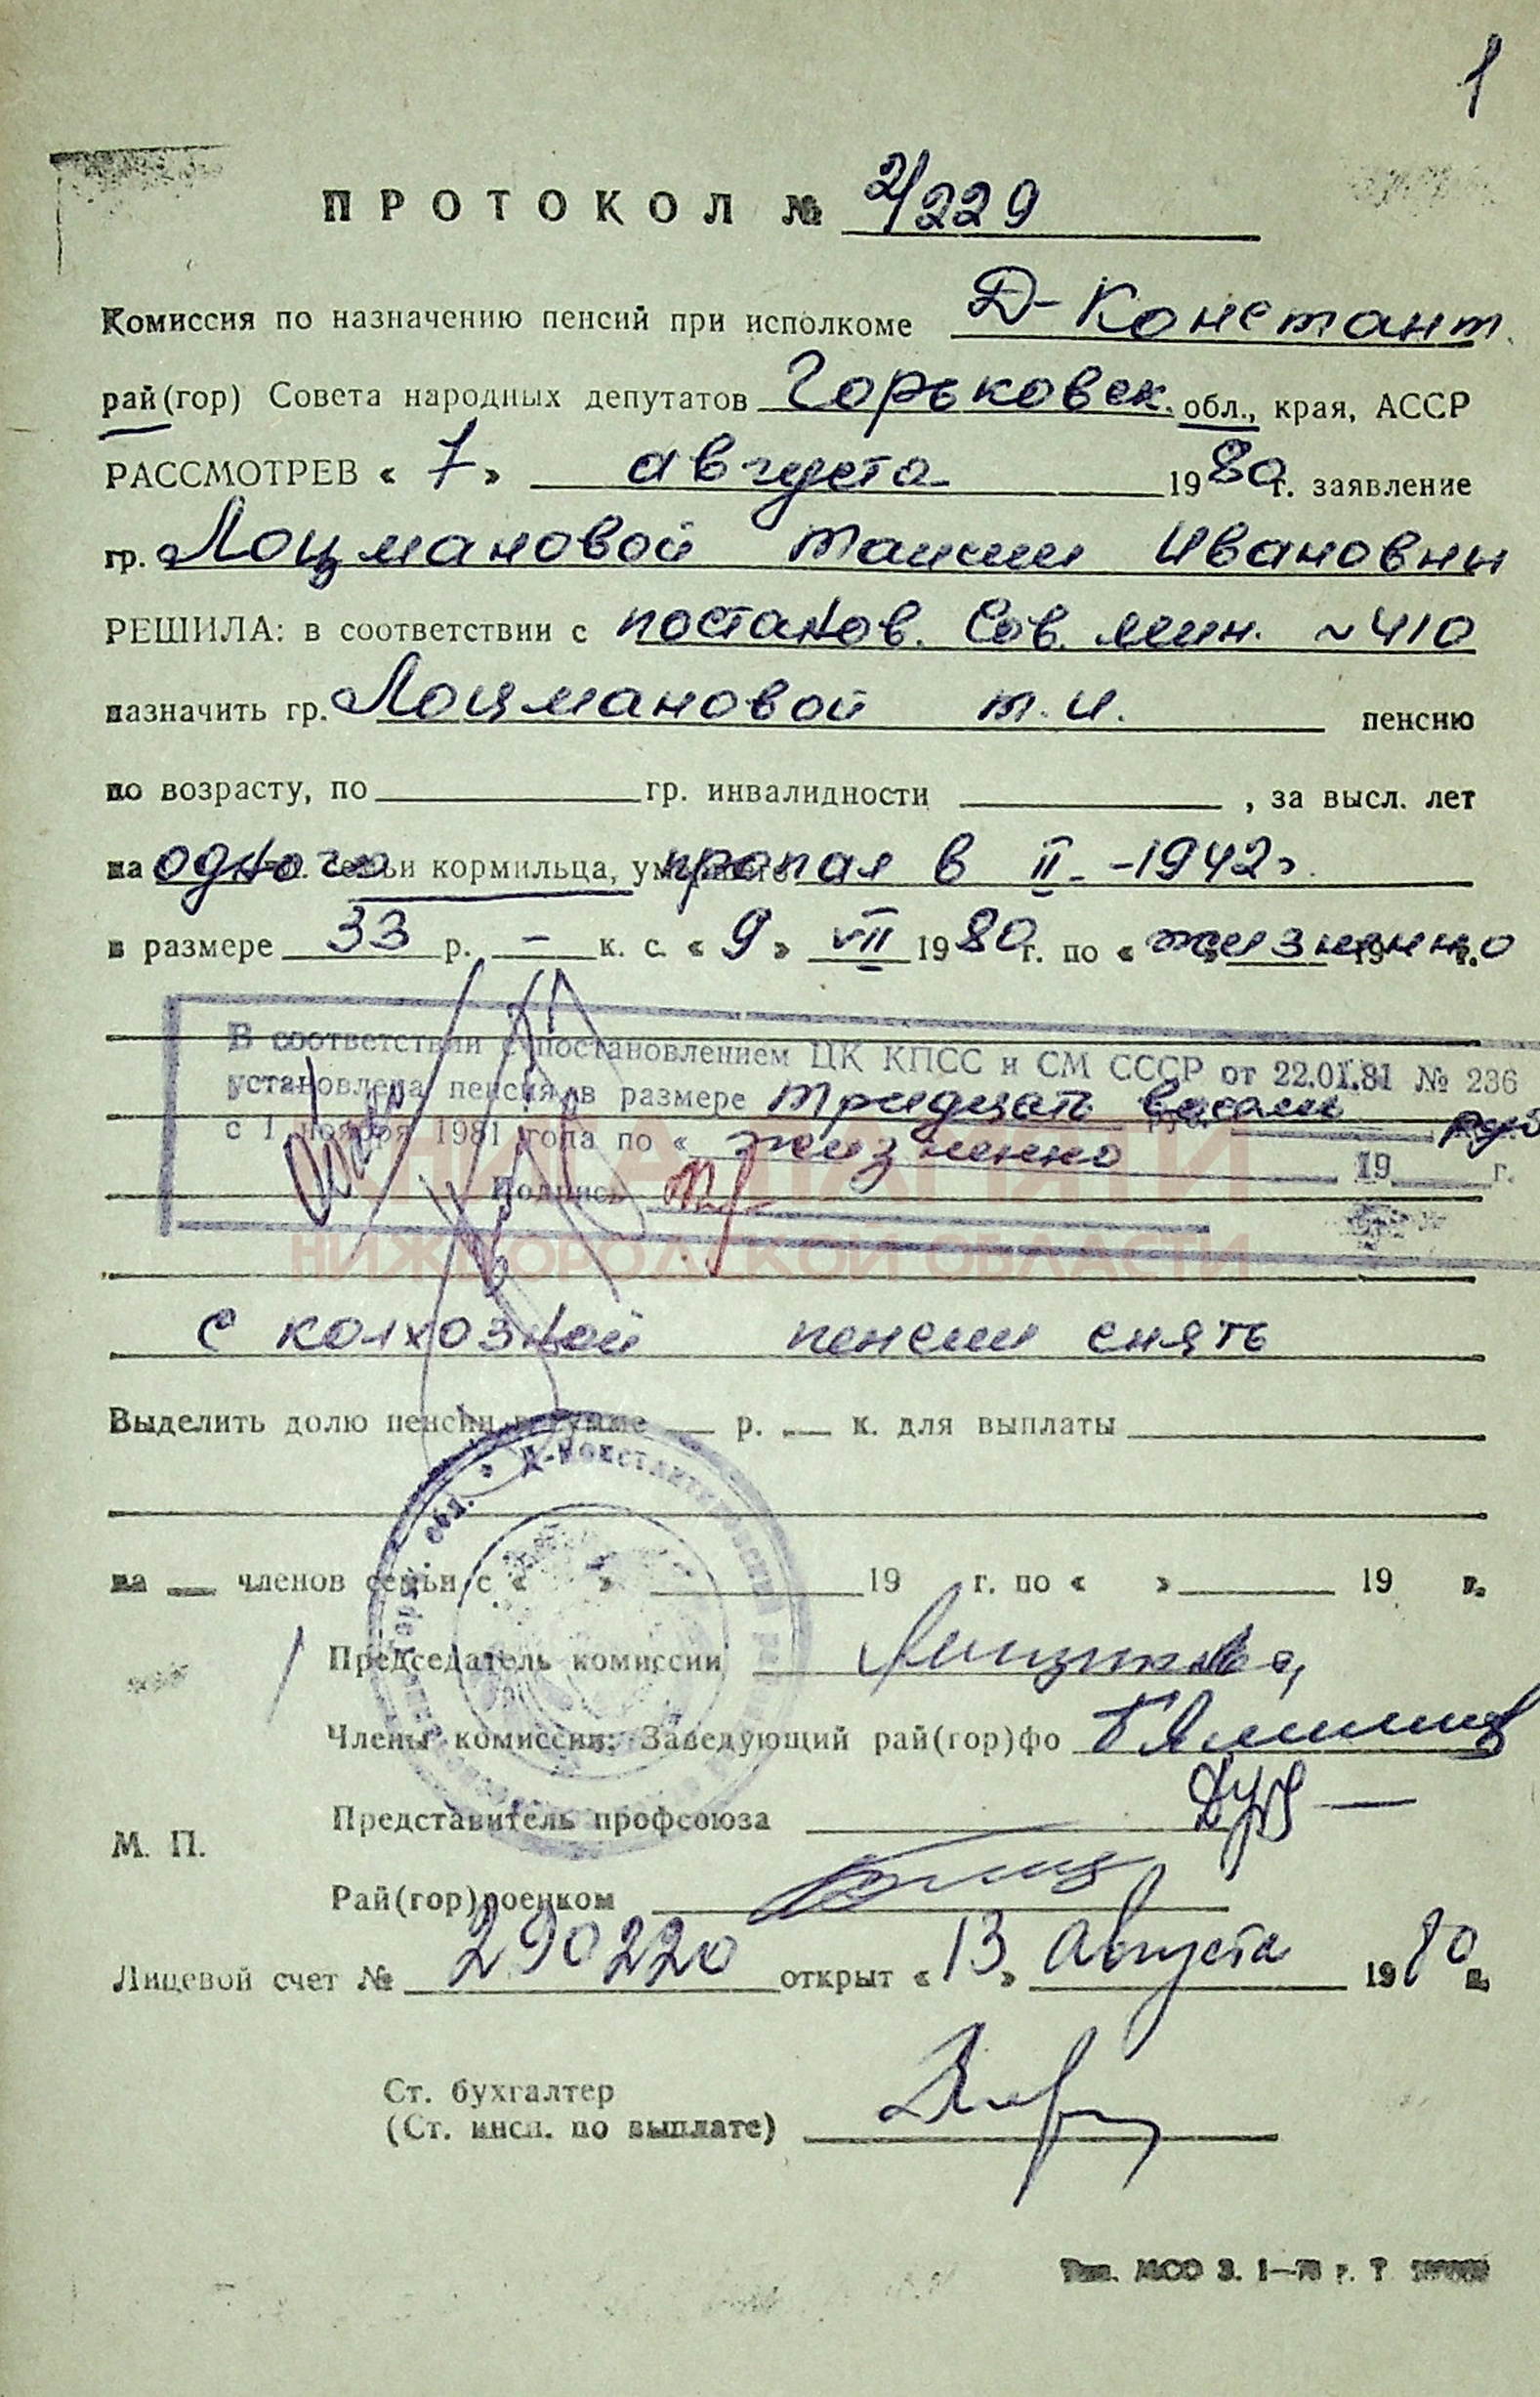 1
ПРОТОКОЛ № 2/229
Комиссия по назначению пенсий при исполкоме Д-Констант.
рай(гор) Совета народных депутатов Горьковск. обл., края, АССР
РАССМОТРЕВ « 7 » августа 1980 г. заявление
гр. Лоцмановой Таисии Ивановны
РЕШИЛА: в соответствии с постанов. Сов. мин. ~ 410
назначить гр. Лоцмановой Т. И. пенсию
по возрасту, по гр. инвалидности , за высл. лет
на одного семьи кормильца, пропал в II - 1942г.
в размере 33 р. – к. с. « 9 » VII 1980 г. по « жизненно 19 г.
В соответствии с постановлением ЦК КПСС и СМ СССР от 22.01.81 № 236
установлена пенсия в размере тридцать восемь руб
с 1 ноября 1981 года по « жизненно 19 г.
Подпись
КНИГА ПАМЯТИ
НИЖЕГОРОДСКОЙ ОБЛАСТИ
с колхозной пенсии снять
Выделить долю пенсии в сумме — р. — к. для выплаты
на — членов семьи с « » 19 г. по « » 19 г.
Председатель комиссии
Члены комиссии: Заведующий рай(гор)фо
Представитель профсоюза
М. П.
Рай(гор)военком
Лицевой счет № 290220 открыт « 13 » августа 1980 г.
Ст. бухгалтер
(Ст. инсп. по выплате)